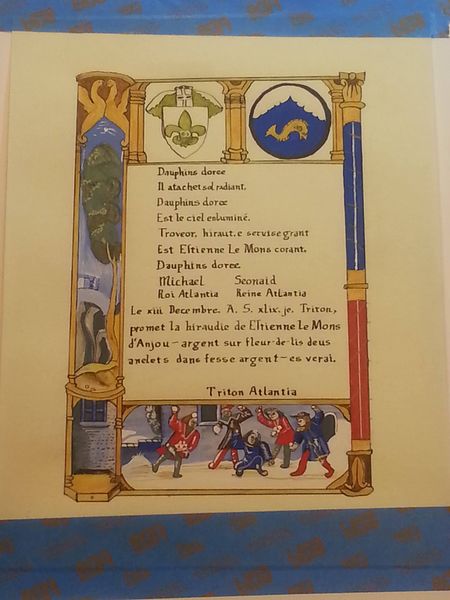 Dauphins doree
Il atachet sol radiant,
Dauphins doree
Est le ciel enluminé.
Troveor, hiraut, e servise grant
Est Estienne Le Mons corant.
Dauphins doree.
Michael Seonaid
Roi Atlantia Reine Atlantia
Le xiii Decembre, A. S. xlix, je, Triton,
promet la hiraudie de Estienne Le Mons
d'Anjou – argent sur fleur-de-lis deus
anelets dans fesse argent – es verai.
Triton Atlantia